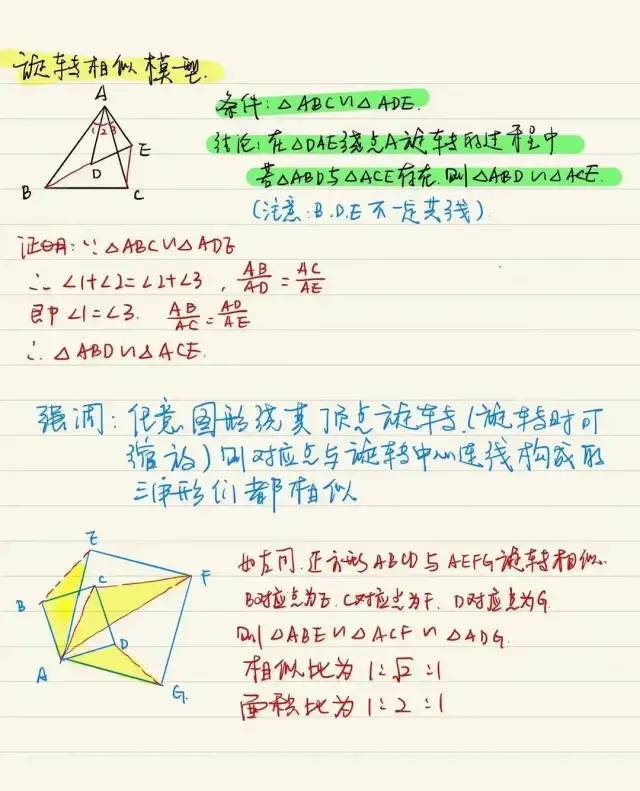 旋转相似模型.
A
1 2 3
E
D
B
C
条件:△ABC∽△ADE.
结论:在△DAE绕点A旋转的过程中
若△ABD与△ACE存在.则△ABD∽△ACE.
(注意:B.D.E不一定共线)
证明:∵△ABC∽△ADE
∴∠1+∠2=∠2+∠3, AB/AD=AC/AE
即∠1=∠3. AB/AC=AD/AE
∴△ABD∽△ACE.
强调:任意图形绕某顶点旋转(旋转时可
缩放)则对应点与旋转中心连线构成的
三角形们都相似
E
C
F
B
D
A
G.
如左图.正方形ABCD与AEFG旋转相似.
B对应点为E.C对应点为F.D对应点为G.
则△ABE∽△ACF∽△ADG.
相似比为1:√2:1
面积比为1:2:1